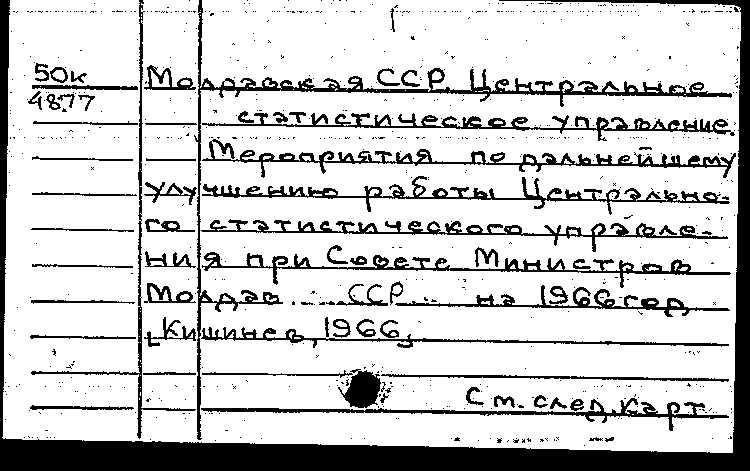 50к Молдавская ССР. Центральное
4877 статистическое управление.
Мероприятия по дальнейшему
улучшению работы Центрально-
го статистического управле-
ния при Совете Министров
Молдав. ССР на 1966 год
[Кишинев, 1966]
См. след. карт